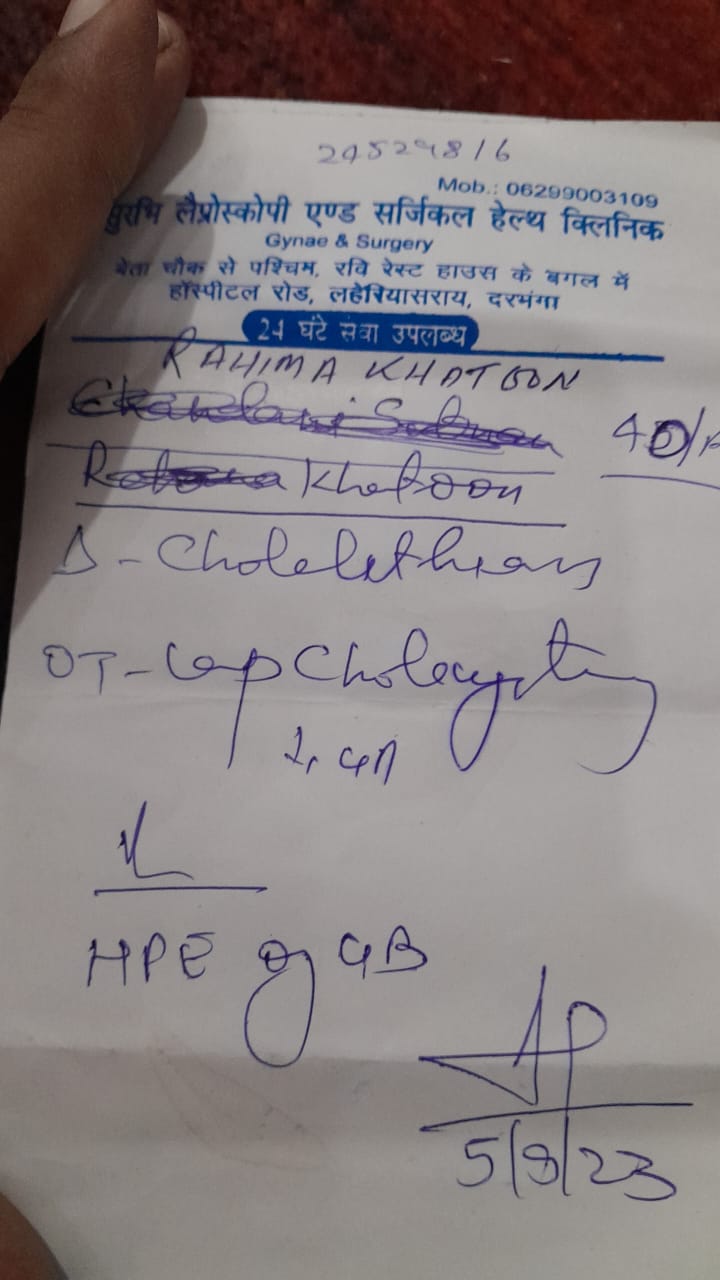 24529816
Mob.: 06299003109
सुरभि लैप्रोस्कोपी एण्ड सर्जिकल हेल्थ क्लिनिक
Gynae & Surgery
बेता चौक से पश्चिम, रवि रेस्ट हाउस के बगल में
हॉस्पीटल रोड, लहेरियासराय, दरभंगा
24 घंटे सेवा उपलब्ध
RAHIMA KHATOON
40/
Khatoon
Δ - Cholelithiasis
OT - Lap Cholecystectomy
HPE of GB
5/8/23